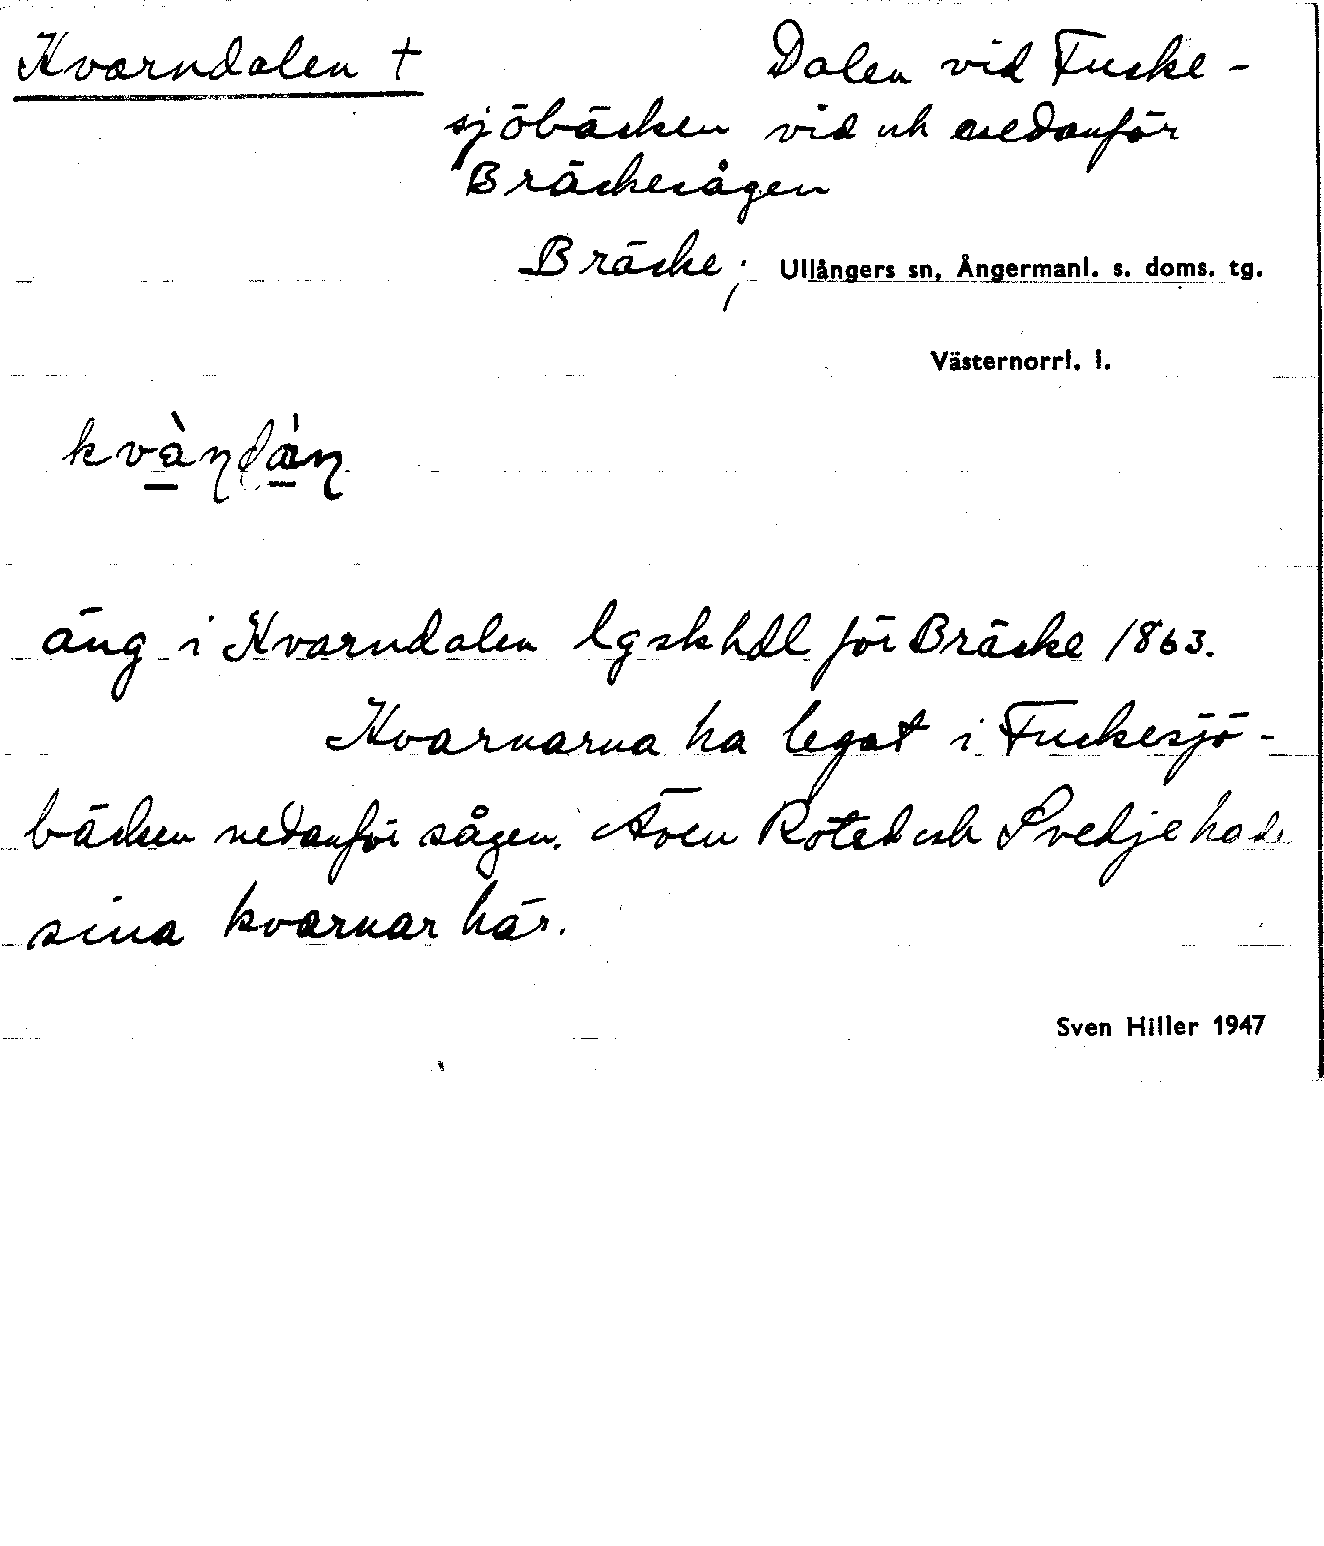 Kvarndalen †
Dalen vid Fuske-
sjöbäcken vid och nedanför
Bräckesågen
Bräcke; Ullångers sn, Ångermanl. s. doms. tg.
Västernorrl. l.
äng i Kvarndalen lgskhdl för Bräcke 1863.
Kvarnarna ha legat i Fuskesjö-
bäcken nedanför sågen. Även Röted och Svedje hade
sina kvarnar här.
Sven Hiller 1947